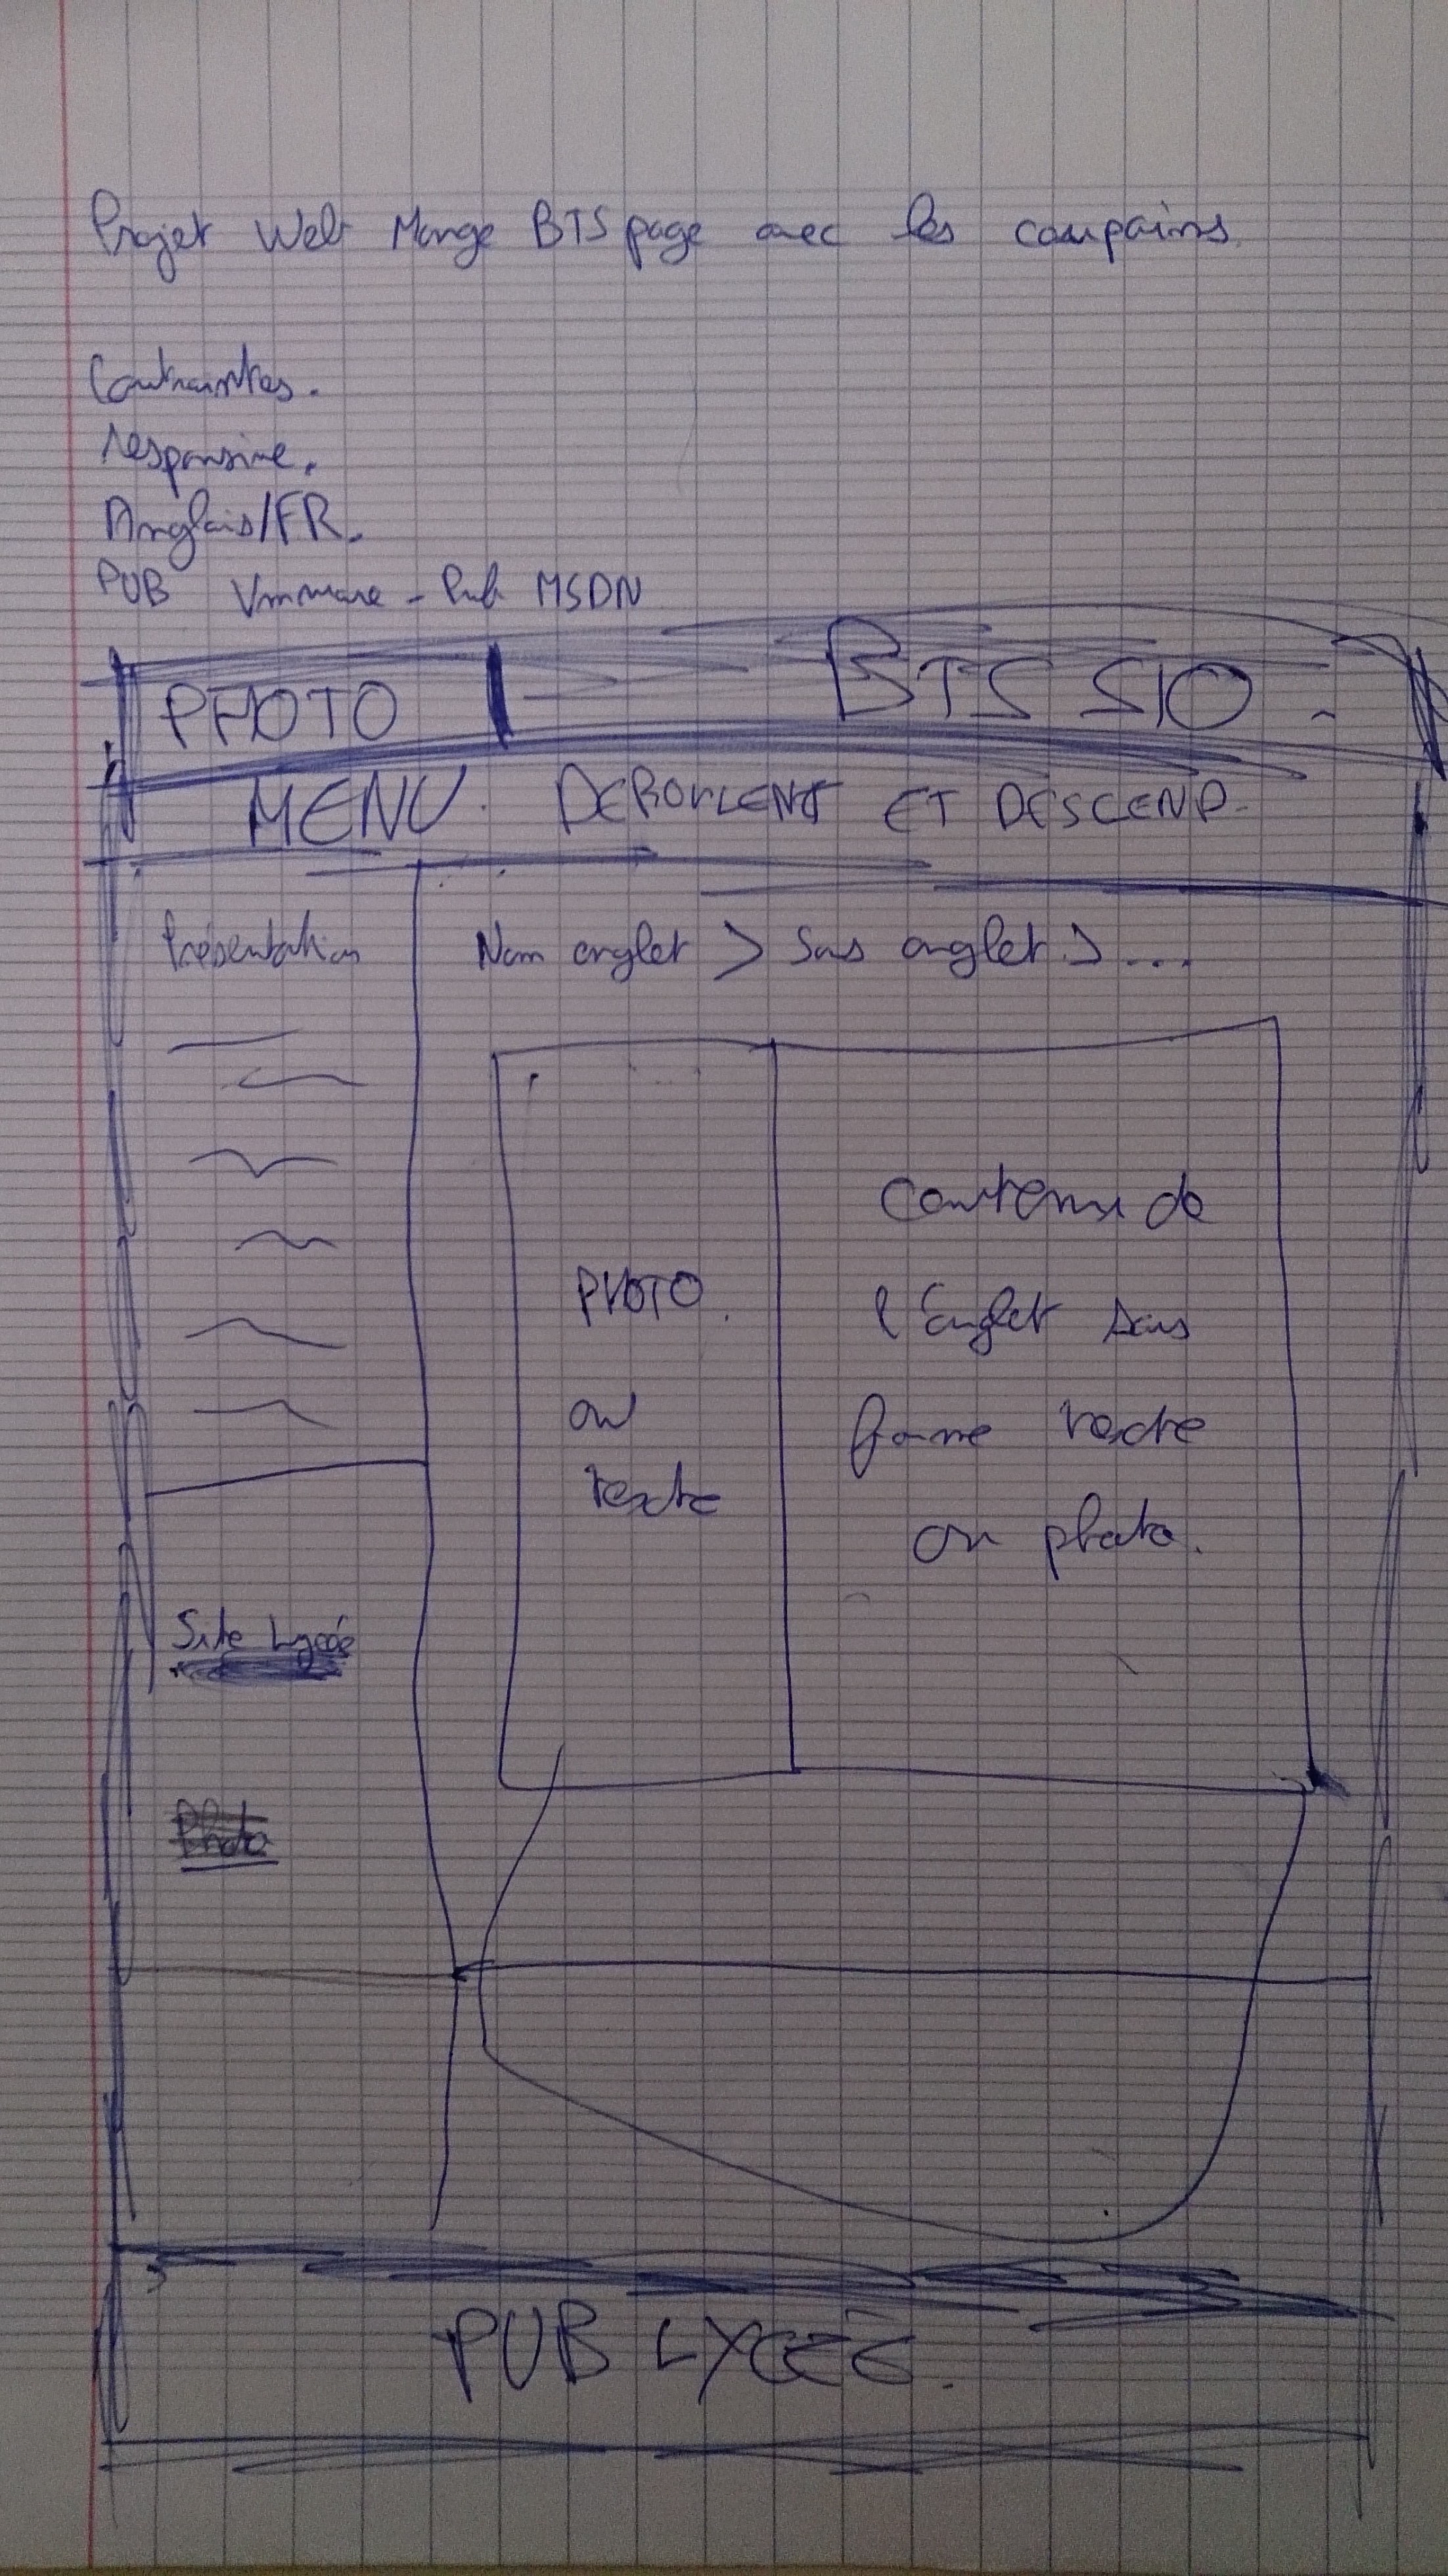 Projet Web Mange BTS page avec les coupains
Contraintes.
responsive.
Anglais/FR.
PUB Vmware - Pub MSDN
PHOTO BTS SIO.
MENU. DEROULENT ET DESCEND.
Présentation
Nom onglet > Sous onglet > ...
PHOTO.
ou
texte
Contenu de
l'onglet sous
forme texte
ou photo.
Site Lycée
Photo
PUB LYCEE.